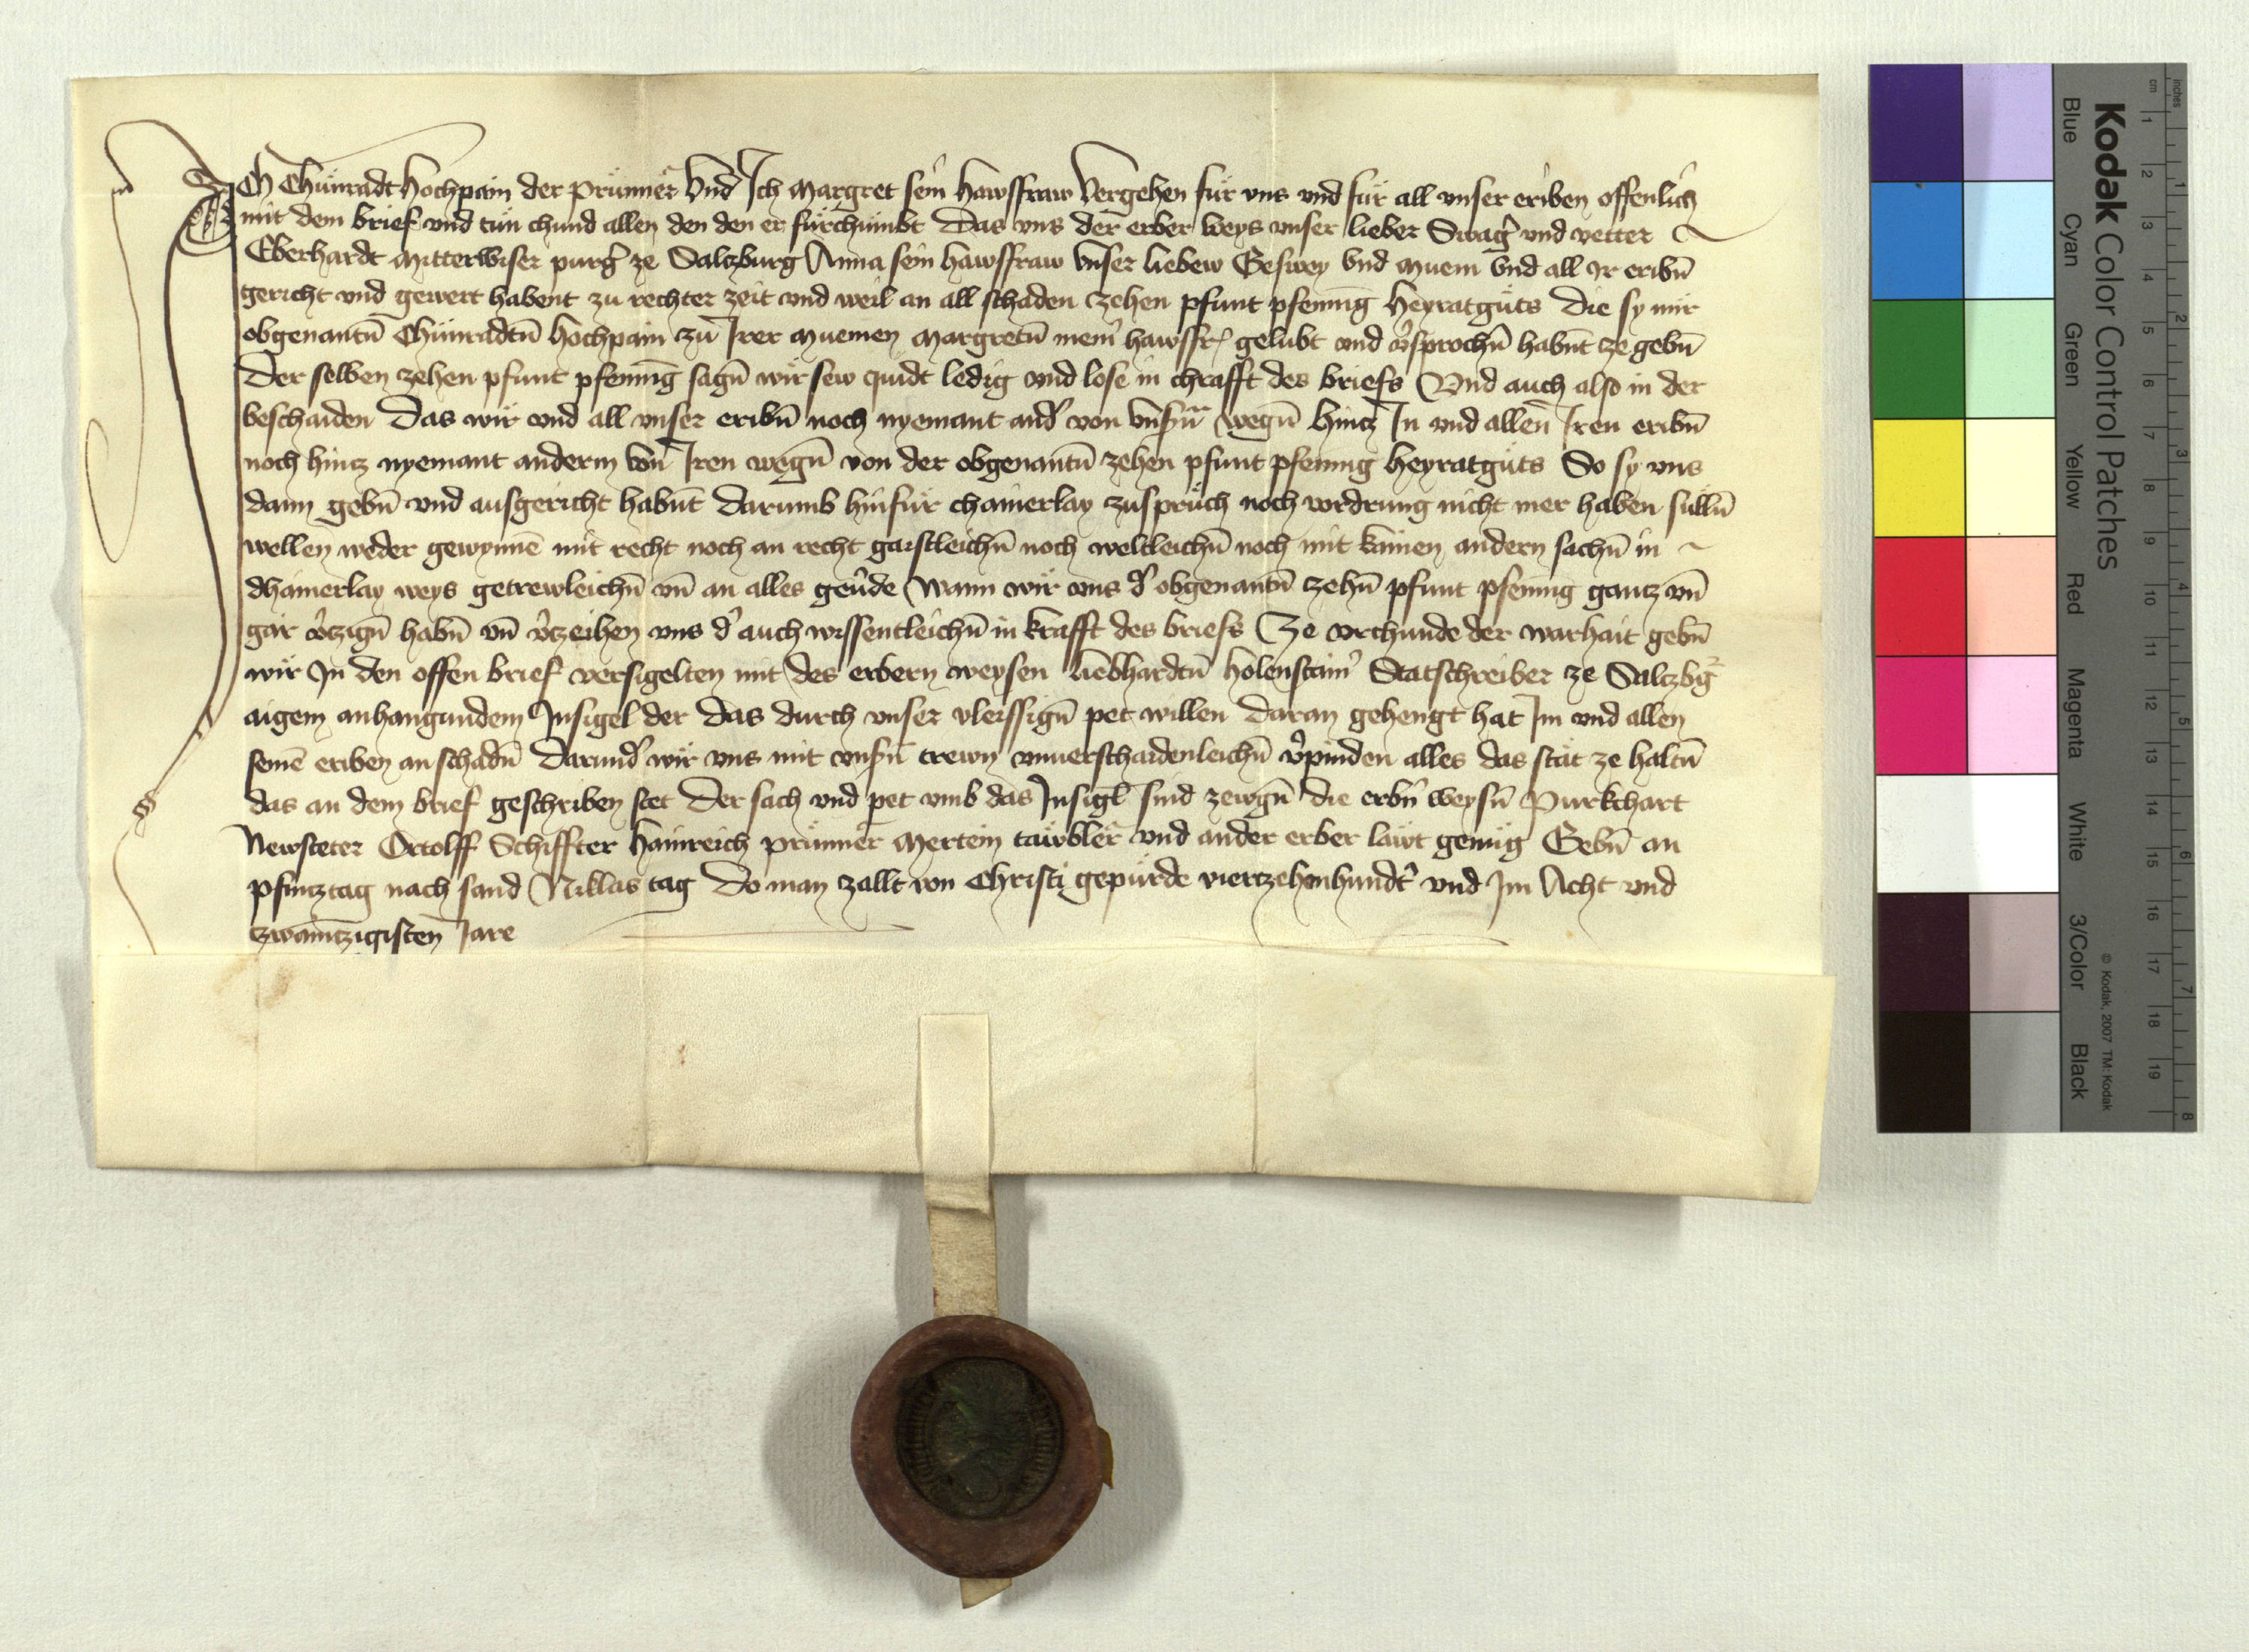 Ich Chunradt Hochpain der prunner Und Ich Margret sein hawsfraw Vergehen fur uns und fur all unser eriben offenlich
mit dem brief und tun chund allen den den er furchumbt Das uns der erber weys unser lieber Swag̉ und vetter
Eberhardt Mitterwiser purg̉ ze Saltzburg Anna sein hawsfraw Unser liebew Geswey Und Muem Und all Ir eribn̄
gericht und gewert habent zu rechter zeit und weil an all schaden zehen pfunt pfennīg heyratguts die sy mir
obgenantn̄ Chunradtn̄ hochpain zu Irer Muemen Margretn̄ mein̉ hawsfr gelubt und v̉sprochn̄ habnt ze gebn̄
Der selben zehen pfunt pfennīg sagn̄ wir sew quidt ledig und lose in chrafft des briefs Und auch also in der
beschaiden Das wir und all unser eribn̄ noch nyemant and̉ von unsn̄ wegn̄ hintz In und allen̄ Iren eribn̄
noch hintz nyemant anderm von Iren wegn̄ von der obgenantn̄ zehen pfunt pfennig heyratguts So sy uns
dann gebn̄ und ausgericht habnt darumb hinfur chainerlay zuspruch noch vordrung nicht mer haben sulln̄
wellen weder gewynnē mit recht noch an recht gaistleichn̄ noch weltleichn̄ noch mit kainen andern sachn̄ in
dhainerlay weys getrewleichn̄ un̄ an alles geu̇de Wann wir uns d̉ obgenantn̄ zehn̄ pfunt pfennig gantz un̄
gar v̉tzign̄ habn̄ un̄ v̉tzeihen uns d̉ auch wissentleichn̄ in krafft des briefs Ze urchunde der warhait gebn̄
wir In den offen brief versigelten mit des erbern weysen liebhardtn̄ holenstain̉ Statschreiber ze Saltzbg̉
aigem anhangundem Insigel der das durch unser vleissign̄ pet willen daran gehengt hat Im und allen
seinē eriben an schadn̄ Darund̉ wir uns mit unsn̄ trewn unverschaidenleichn̄ v̉pinden alles das stät ze haltn̄
das an dem brief geschriben stet Der sach und pet umb das Insigl̄ sind zewgn̄ die erbn̉ weysn̄ Purkchart
Newsteter Ortolff Schiffter hainreich prunner Mertein tawbler und ander erber lawt genug Gebn̄ an
pfintztag nach sand Niklas tag Do man zallt von Christi gepurde viertzehenhundt̉ und Im Acht und
tzwaintzigisten Jare
Kodak Color Control Patches
Blue Cyan Green Yellow Red Magenta White 3/Color Black
© Kodak, 2007 TM: Kodak
inches 1 2 3 4 5 6 7 8
cm 1 2 3 4 5 6 7 8 9 10 11 12 13 14 15 16 17 18 19